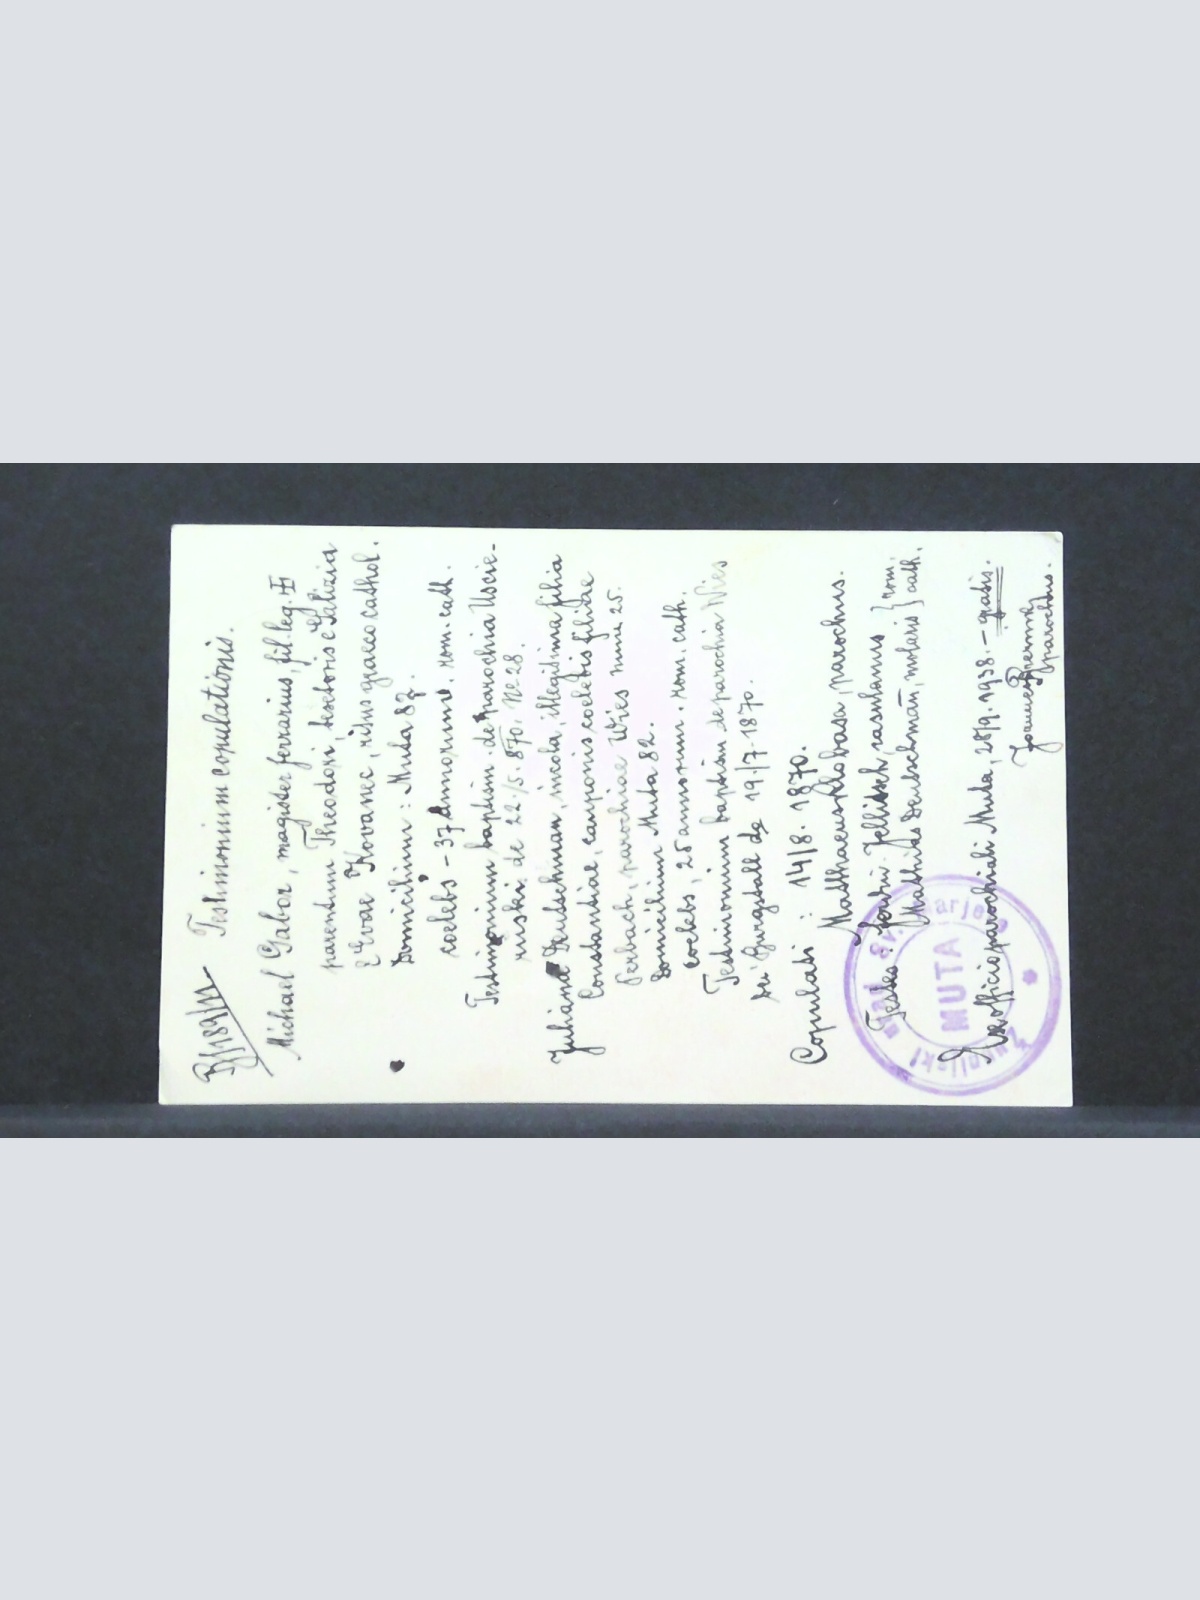 Testimonium copulationis.
Michael Gabor, magister ferrarius, fil. leg.
parentum Theodori, textoris e Galizia
Evae Kovanec, ritus graeco cathol.
Domicilium: Muta 82.
coelebs - 37 annorum. rom. cath.
Testimonium baptism. de parochia Uscie-
ruski. de 22./5. 870. No 28.
Juliana Deutschman, incola, illegitima filia
Constantiae, cauponis coelebis filiae
Perbach, parochiae Wies num. 25.
Domicilium Muta 82.
coelebs, 25 annorum. rom. cath.
Testimonium baptism de parochia Wies
bei Burgstall de 19./7. 1870.
Copulati: 14/8. 1870.
Matthaeus parochus.
Testes: Jellitsch, rom.
Mathias Deutschman, molaris cath.
Ex officio parochiali Muta, 28/9. 1938. - gratis.
Joannes
parochus.
Župnijski urad Sv. Marjete
MUTA